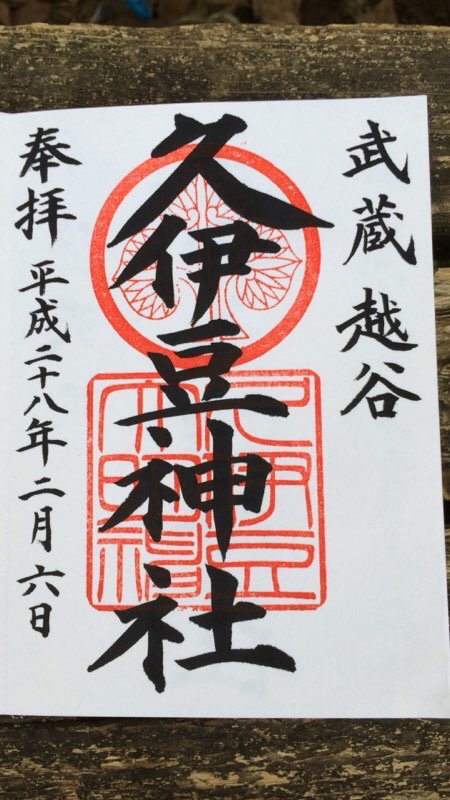 武蔵 越谷
久伊豆神社
奉拝 平成二十八年二月六日